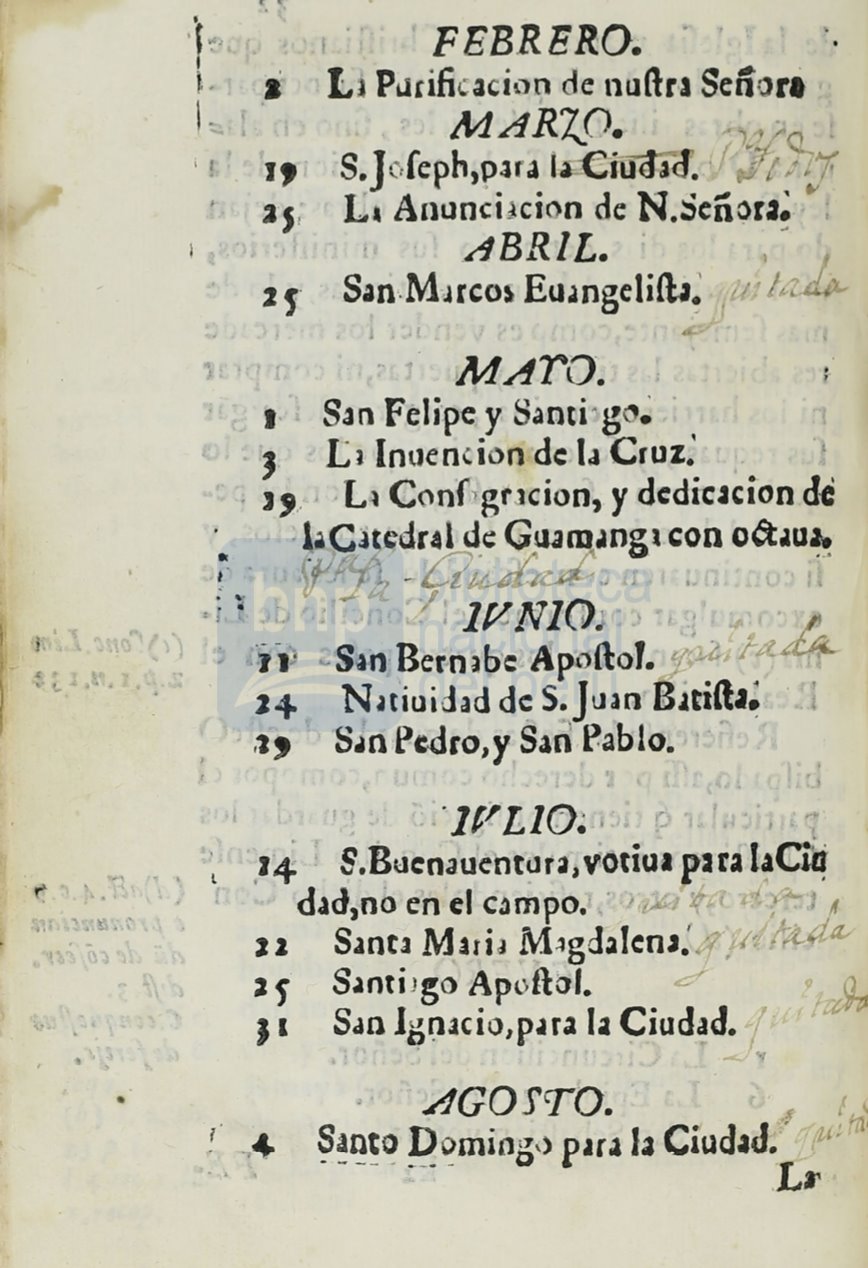 FEBRERO.
2 La Purificacion de nuſtra Señora
MARZO.
19 S. Joſeph, para la Ciudad.
25 La Anunciacion de N. Señora.
ABRIL.
25 San Marcos Euangeliſta. quitada
MAYO.
1 San Felipe y Santiago.
3 La Inuencion de la Cruz.
29 La Conſagracion, y dedicacion de
la Catedral de Guamanga con octaua.
para la Ciudad.
IVNIO.
11 San Bernabe Apoſtol. quitada
24 Natiuidad de S. Juan Batiſta.
29 San Pedro, y San Pablo.
IVLIO.
14 S. Buenauentura, votiua para la Ciu
dad, no en el campo. quitada
22 Santa Maria Magdalena. quitada
25 Santiago Apoſtol.
31 San Ignacio, para la Ciudad. quitado
AGOSTO.
4 Santo Domingo para la Ciudad. quitad
La